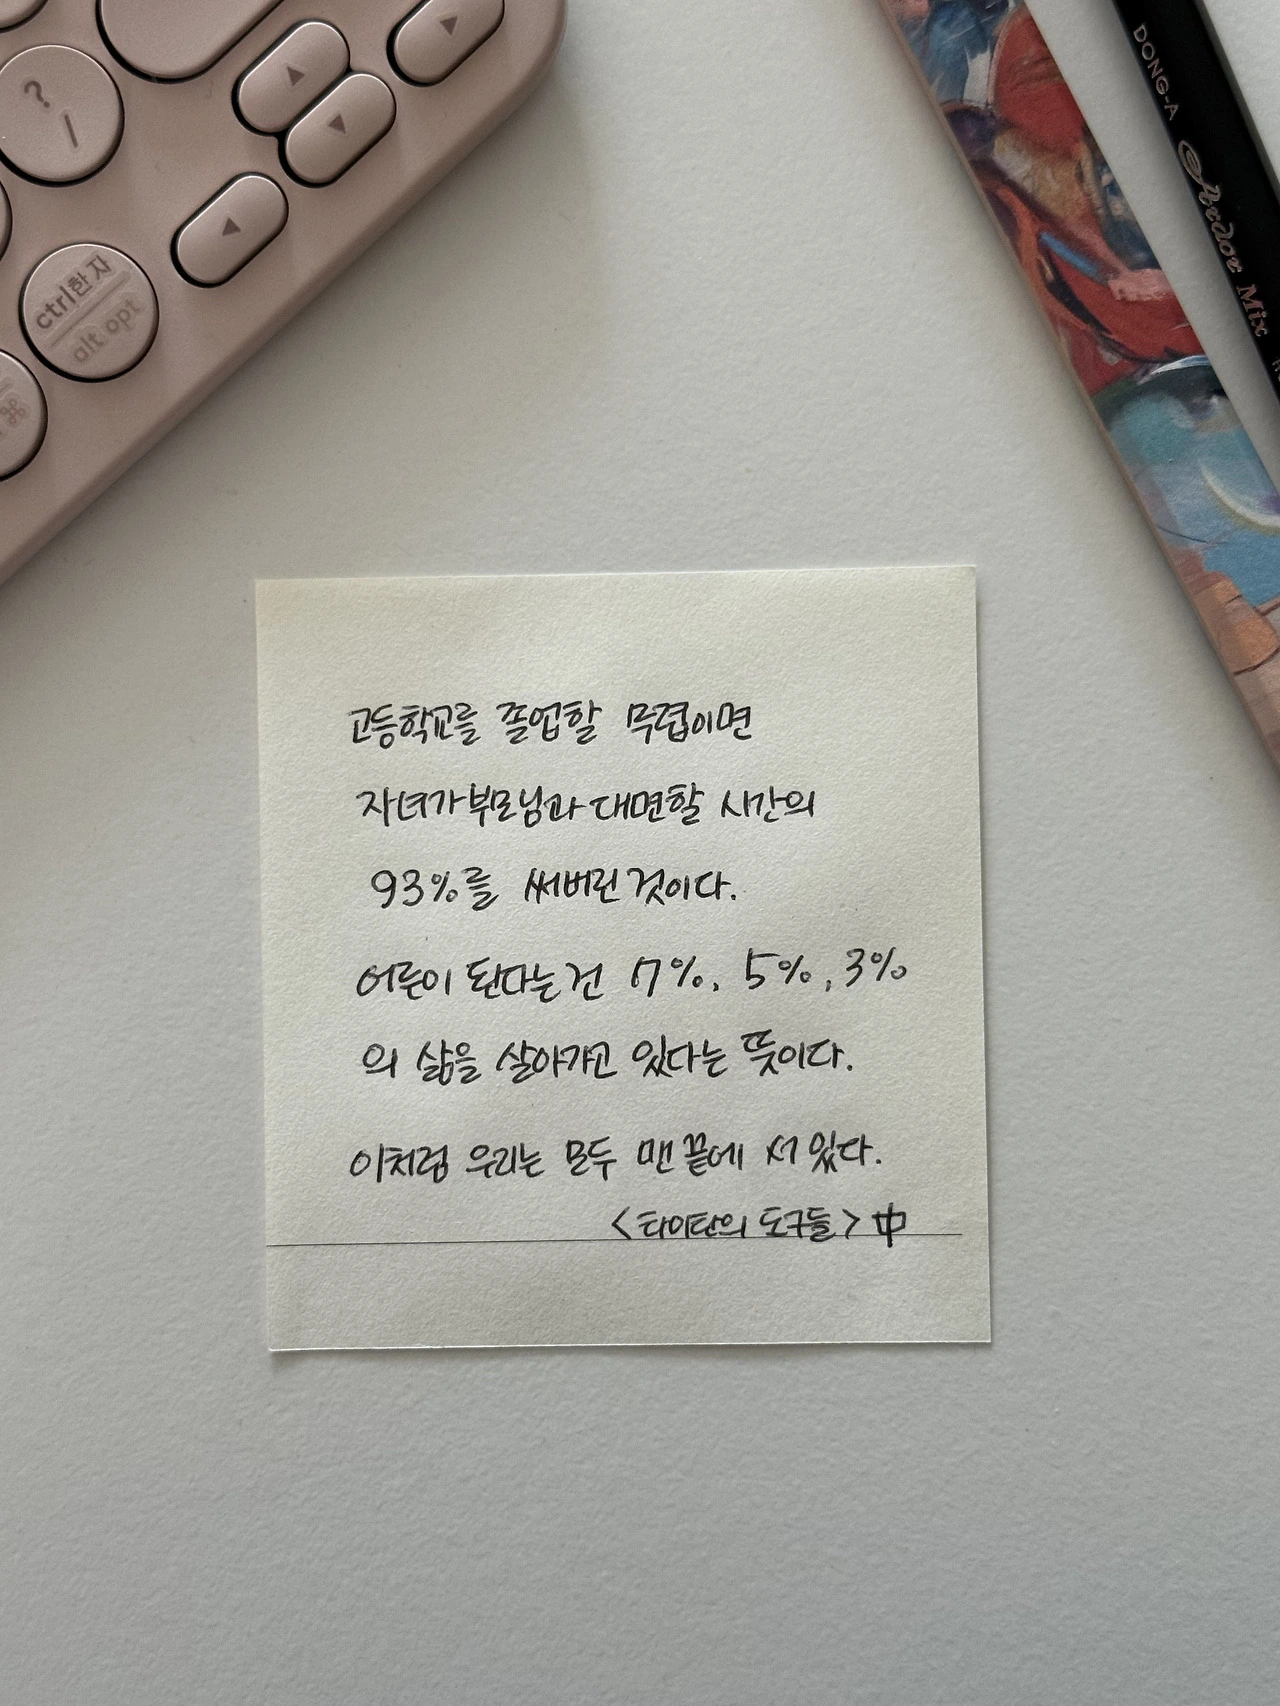 ?
/
ctrl 한자
alt opt
⌘
DONG-A
Ardor Mix
고등학교를 졸업할 무렵이면
자녀가 부모님과 대면할 시간의
93%를 써버린 것이다.
어른이 된다는 건 7%, 5%, 3%
의 삶을 살아가고 있다는 뜻이다.
이처럼 우리는 모두 맨 끝에 서 있다.
<타이탄의 도구들> 中